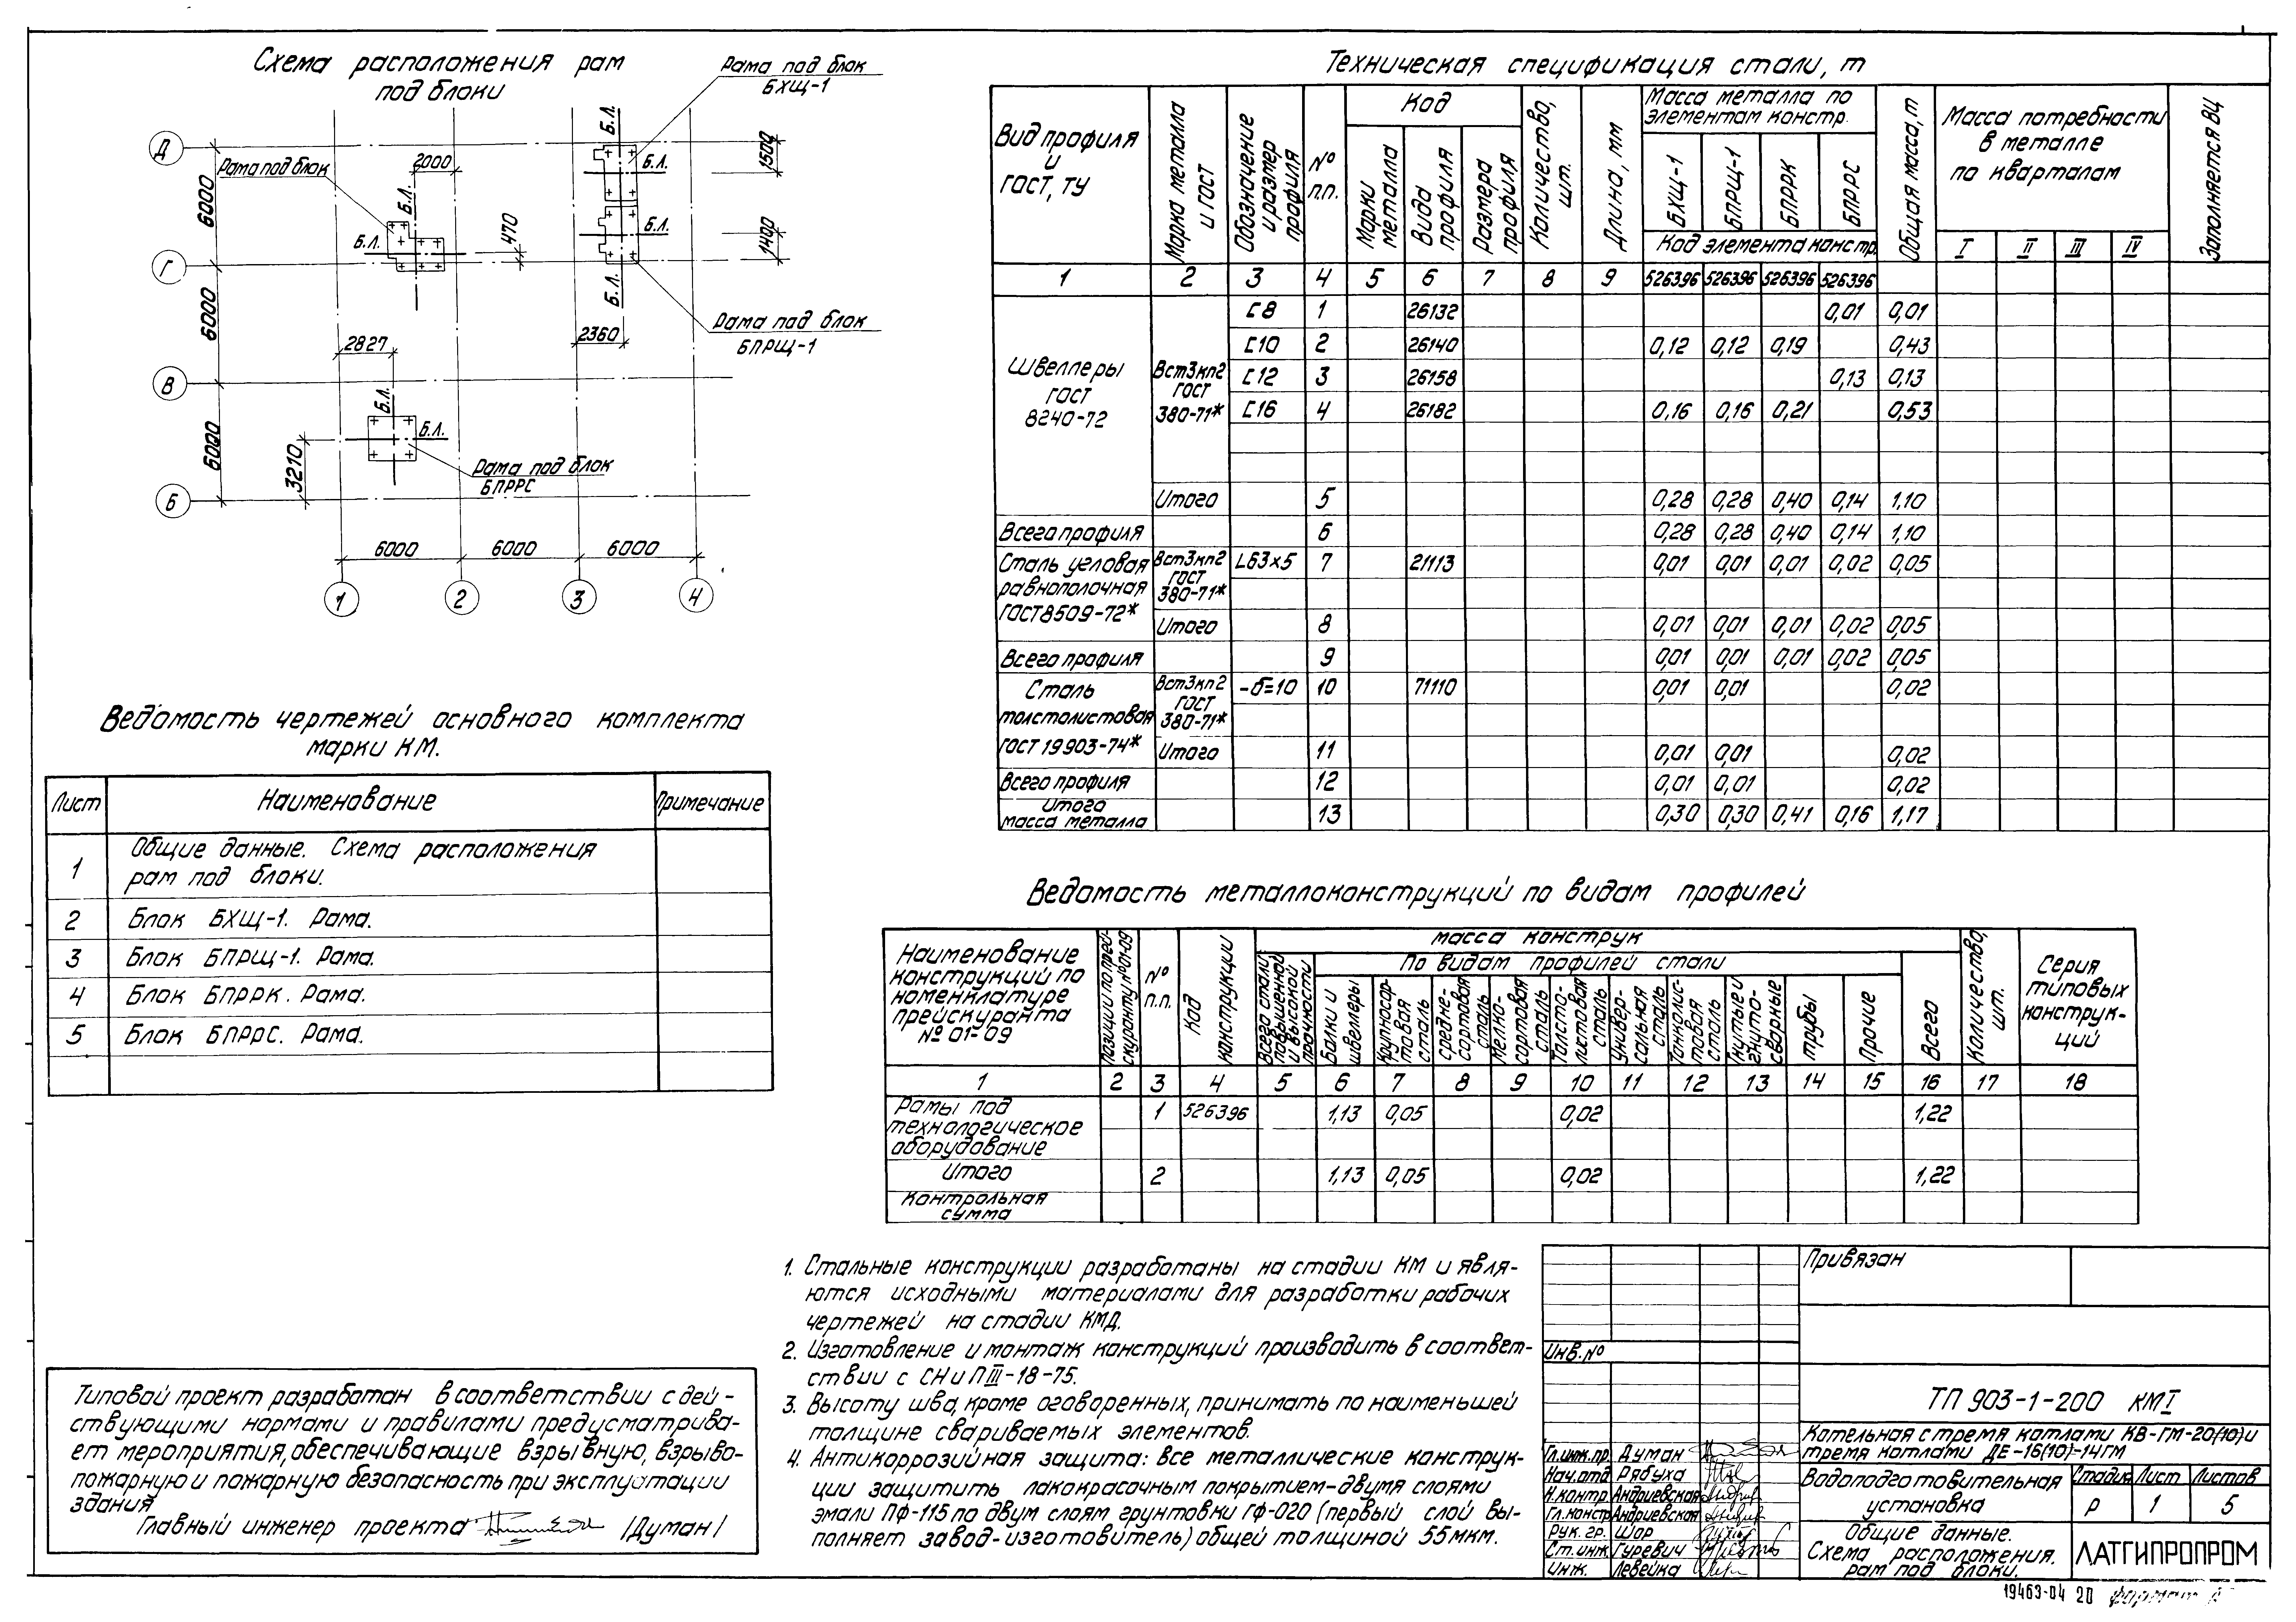 Схема расположения рам
под блоки
Рама под блок
БХЩ-1
Рама под блок
Б.Л.
Б.Л.
Б.Л.
Б.Л.
Б.Л.
Б.Л.
2000
470
1500
1400
6000
6000
6000
Д
Г
В
Б
Рама под блок
БПРЩ-1
2827
2360
Б.Л.
Б.Л.
3210
Рама под блок
БПРРС
6000 6000 6000
1 2 3 4
Ведомость чертежей основного комплекта
марки КМ.
Лист Наименование Примечание
1 Общие данные. Схема расположения
рам под блоки.
2 Блок БХЩ-1. Рама.
3 Блок БПРЩ-1. Рама.
4 Блок БПРРК. Рама.
5 Блок БПРРС. Рама.
Типовой проект разработан в соответствии с дей-
ствующими нормами и правилами предусматрива-
ет мероприятия, обеспечивающие взрывную, взрыво-
пожарную и пожарную безопасность при эксплуатации
здания
Главный инженер проекта /Думан/
Техническая спецификация стали, т
Вид профиля
и
ГОСТ, ТУ
Марка металла
и ГОСТ
Обозначение
и размер
профиля
№
п.п.
Код
Марки
металла
Вида
профиля
Размера
профиля
Количество,
шт.
Длина, мм
Масса металла по
элементам констр.
БХЩ-1 БПРЩ-1 БПРРК БПРРС
Код элемента констр.
Общая масса, т
Масса потребности
в металле
по кварталам
I II III IV
Заполняется ВЦ
1 2 3 4 5 6 7 8 9 526396 526396 526396 526396
Швеллеры
ГОСТ
8240-72
Вст3кп2
ГОСТ
380-71*
[8 1 26132 0,01 0,01
[10 2 26140 0,12 0,12 0,19 0,43
[12 3 26158 0,13 0,13
[16 4 26182 0,16 0,16 0,21 0,53
Итого 5 0,28 0,28 0,40 0,14 1,10
Всего профиля 6 0,28 0,28 0,40 0,14 1,10
Сталь угловая
равнополочная
ГОСТ 8509-72*
Вст3кп2
ГОСТ
380-71*
L63x5 7 21113 0,01 0,01 0,01 0,02 0,05
Итого 8 0,01 0,01 0,01 0,02 0,05
Всего профиля 9 0,01 0,01 0,01 0,02 0,05
Сталь
толстолистовая
ГОСТ 19903-74*
Вст3кп2
ГОСТ
380-71*
-δ=10 10 71110 0,01 0,01 0,02
Итого 11 0,01 0,01 0,02
Всего профиля 12 0,01 0,01 0,02
Итого
масса металла 13 0,30 0,30 0,41 0,16 1,17
Ведомость металлоконструкций по видам профилей
Наименование
конструкций по
номенклатуре
прейскуранта
№ 01-09
позиции по прей-
скуранту №01-09
№
п.п.
Код
конструкции
масса конструк
Всего стали
повышенной
и высокой
прочности
По видам профилей стали
Балки и
швеллеры
Крупносор-
товая
сталь
средне-
сортовая
сталь
мелко-
сортовая
сталь
Толсто-
листовая
сталь
Универ-
сальная
сталь
Тонколис-
товая
сталь
Гнутые и
гнуто-
сварные
трубы
Прочие
Всего
Количество,
шт.
Серия
типовых
конструк-
ций
1 2 3 4 5 6 7 8 9 10 11 12 13 14 15 16 17 18
Рамы под
технологическое
оборудование
1 526396 1,13 0,05 0,02 1,22
Итого 2 1,13 0,05 0,02 1,22
Контрольная
сумма
1. Стальные конструкции разработаны на стадии КМ и явля-
ются исходными материалами для разработки рабочих
чертежей на стадии КМД.
2. Изготовление и монтаж конструкций производить в соответ-
ствии с СНиП III-18-75.
3. Высоту шва, кроме оговоренных, принимать по наименьшей
толщине свариваемых элементов.
4. Антикоррозийная защита: все металлические конструк-
ции защитить лакокрасочным покрытием-двумя слоями
эмали ПФ-115 по двум слоям грунтовки ГФ-020 (первый слой вы-
полняет завод-изготовитель) общей толщиной 55мкм.
Привязан
Инв.№
ТП 903-1-200 КМI
Котельная с тремя котлами КВ-ГМ-20(10) и
тремя котлами ДЕ-16(10)-14ГМ
Гл.инж.пр. Думан
Нач.отд Рябуха
Н.контр. Андриевская
Гл.констр Андриевская
Рук. гр. Шор
Ст.инж. Гуревич
Инж. Левейка
Водоподготовительная
установка
Стадия Лист Листов
Р 1 5
Общие данные.
Схема расположения.
рам под блоки.
ЛАТГИПРОПРОМ
19463-04 20